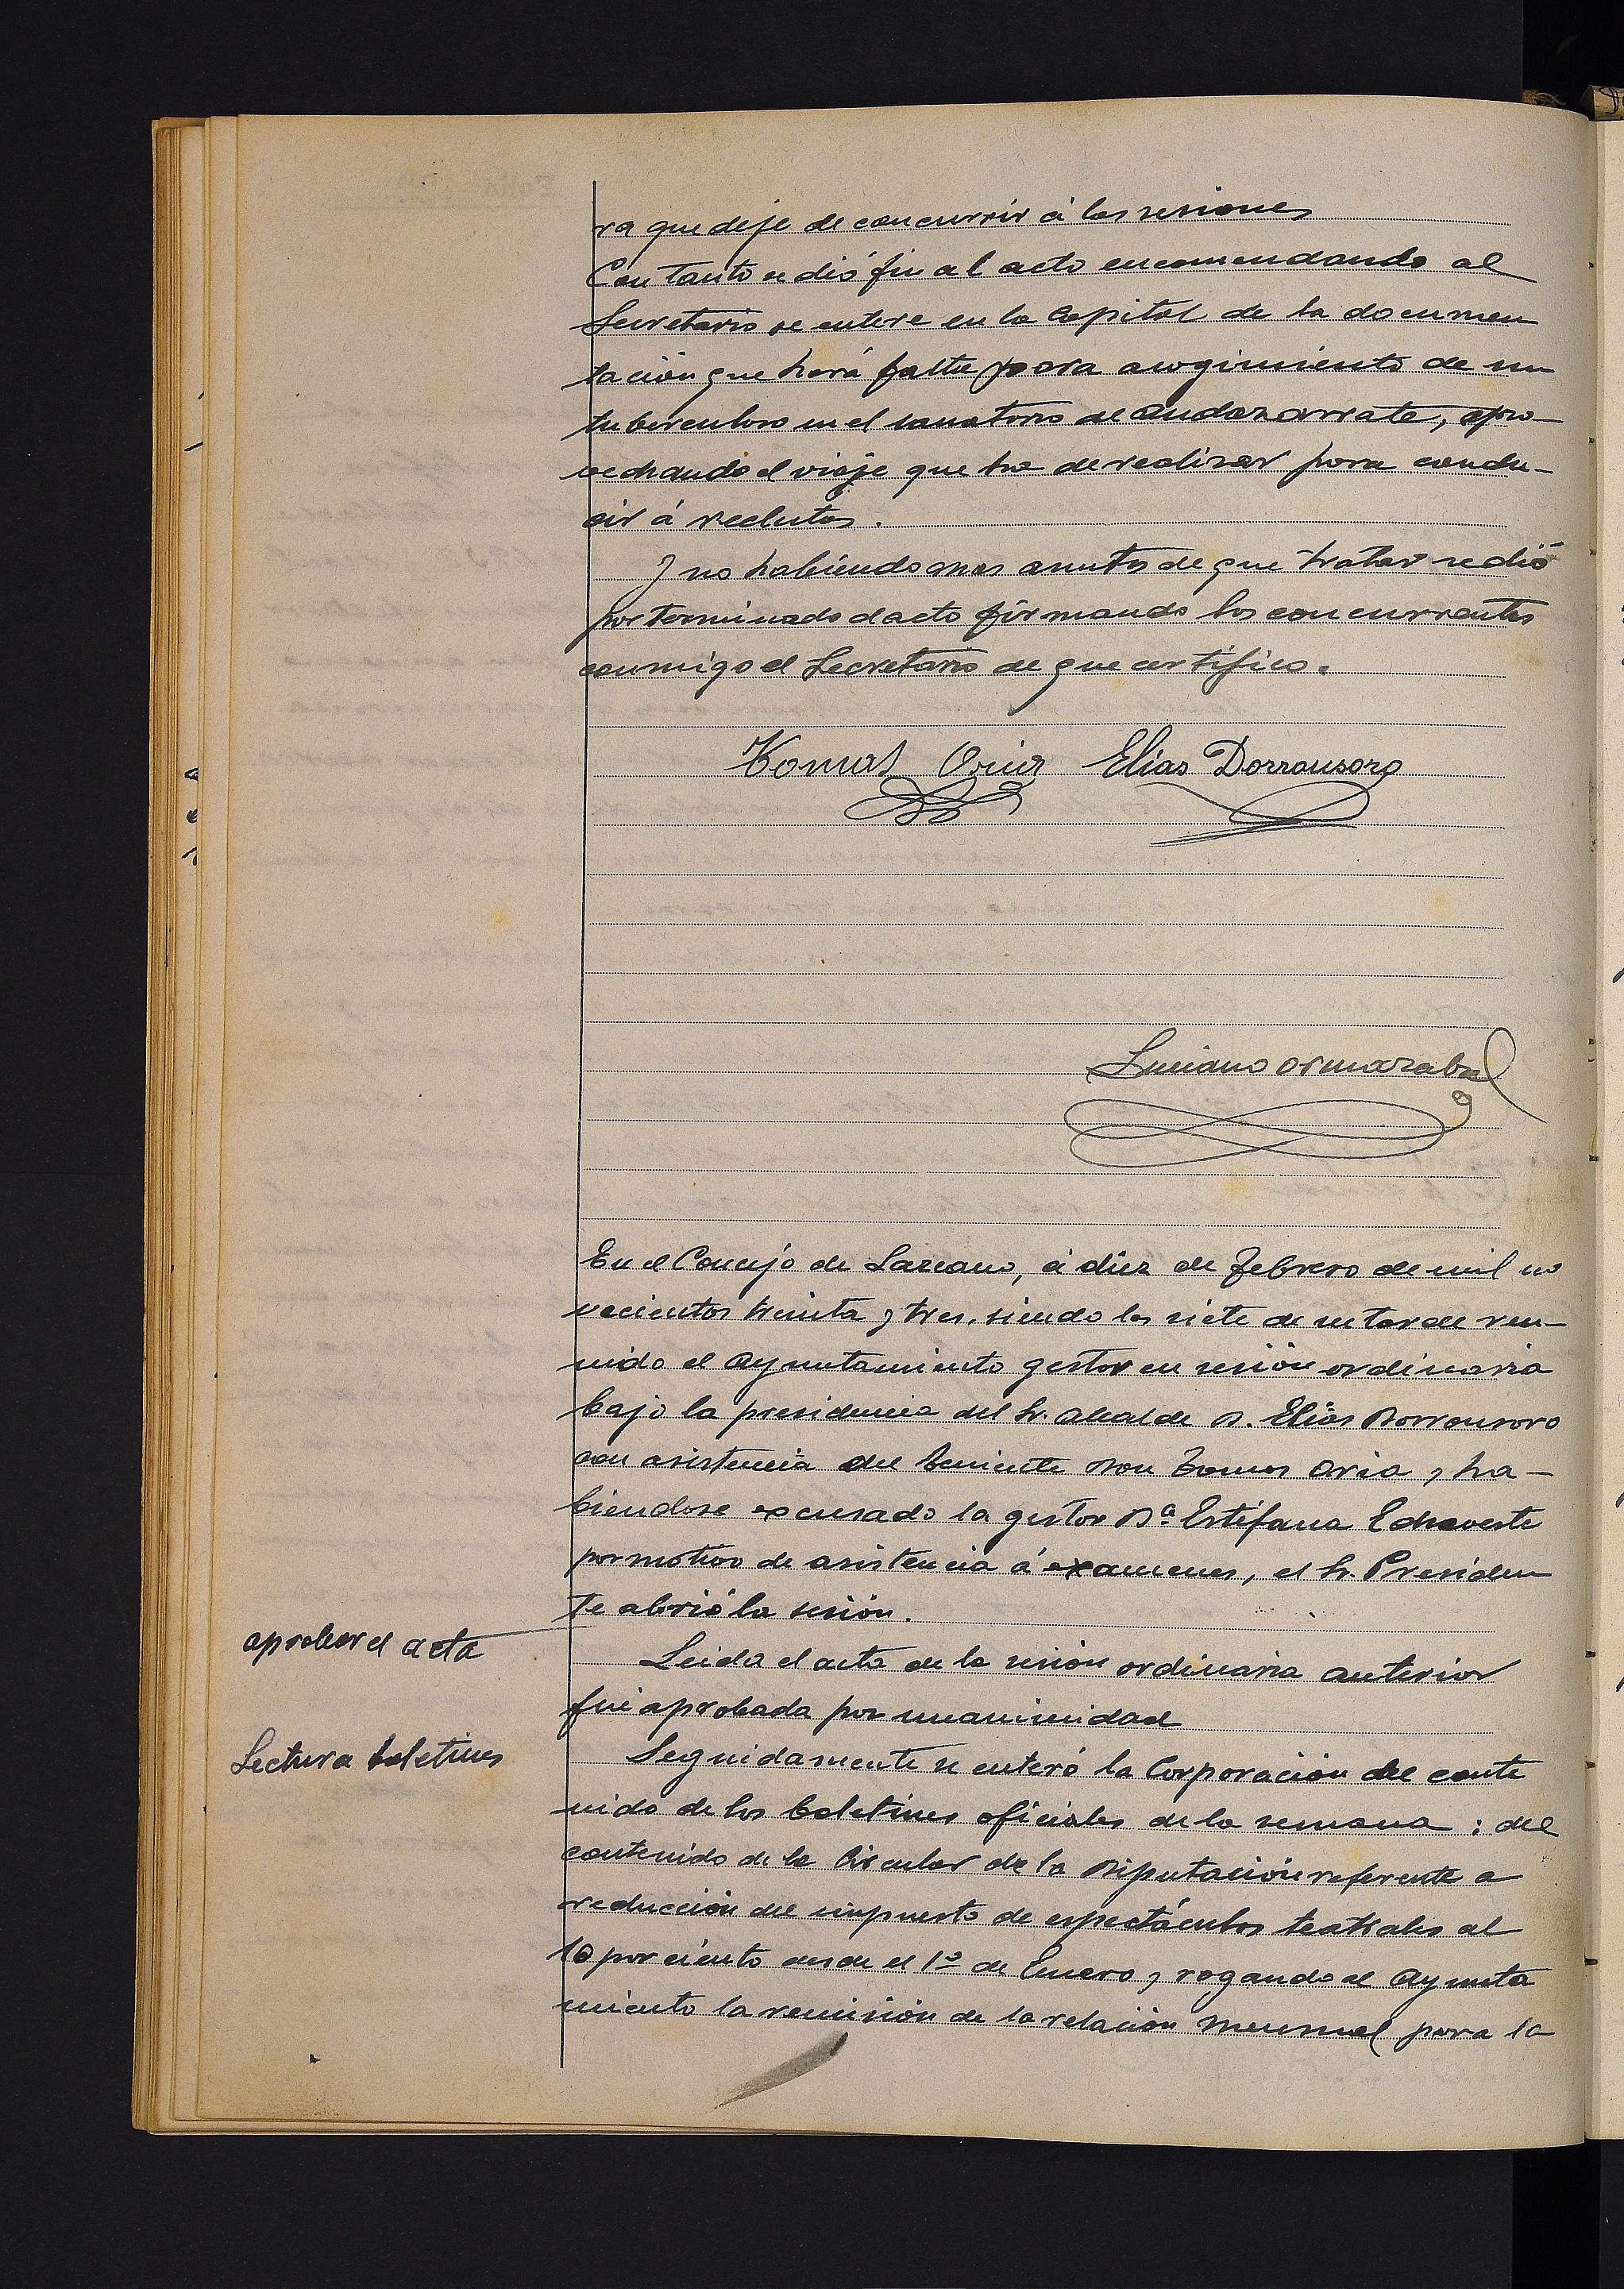 ra que deje de concurrir á las sesiones
Con tanto se dió fin al acto encomendando al
Secretario se entere en la Capital de la documen
tación que hará falta para acogimiento de un
tuberculoso en el sanatorio de Andazarrate, apro-
vechando el viaje que ha de realizar para condu-
cir á reclutas.
Y no habiendo mas asuntos de que tratar se dió
por terminado el acto firmando los concurrentes
conmigo el Secretario de que certifico.
Tomas Oria Elias Dorronsoro
Luciano Ormazabal
En el Concejo de Lazcano, á diez de Febrero de mil no
vecientos treinta y tres, siendo las siete de su tarde reu-
nido el Ayuntamiento gestor en sesión ordinaria
bajo la presidencia del Sr. Alcalde D. Elias Dorronsoro
con asistencia del Teniente Don Tomas Oria y ha-
biendose excusado la gestor Dª Estefana Echeveste
por motivo de asistencia á examenes, el Sr. Presiden
te abrió la sesión.
aprobar el acta
Leida el acta de la sesión ordinaria anterior
fué aprobada por unanimidad
Lectura boletines
Seguidamente se enteró la Corporación del conte
nido de los boletines oficiales de la semana: del
contenido de la Circular de la Diputación referente a
reducción del impuesto de espectáculos teatrales al
10 por ciento desde el 1º de Enero y rogando al Ayunta
miento la remisión de la relación mensual para la